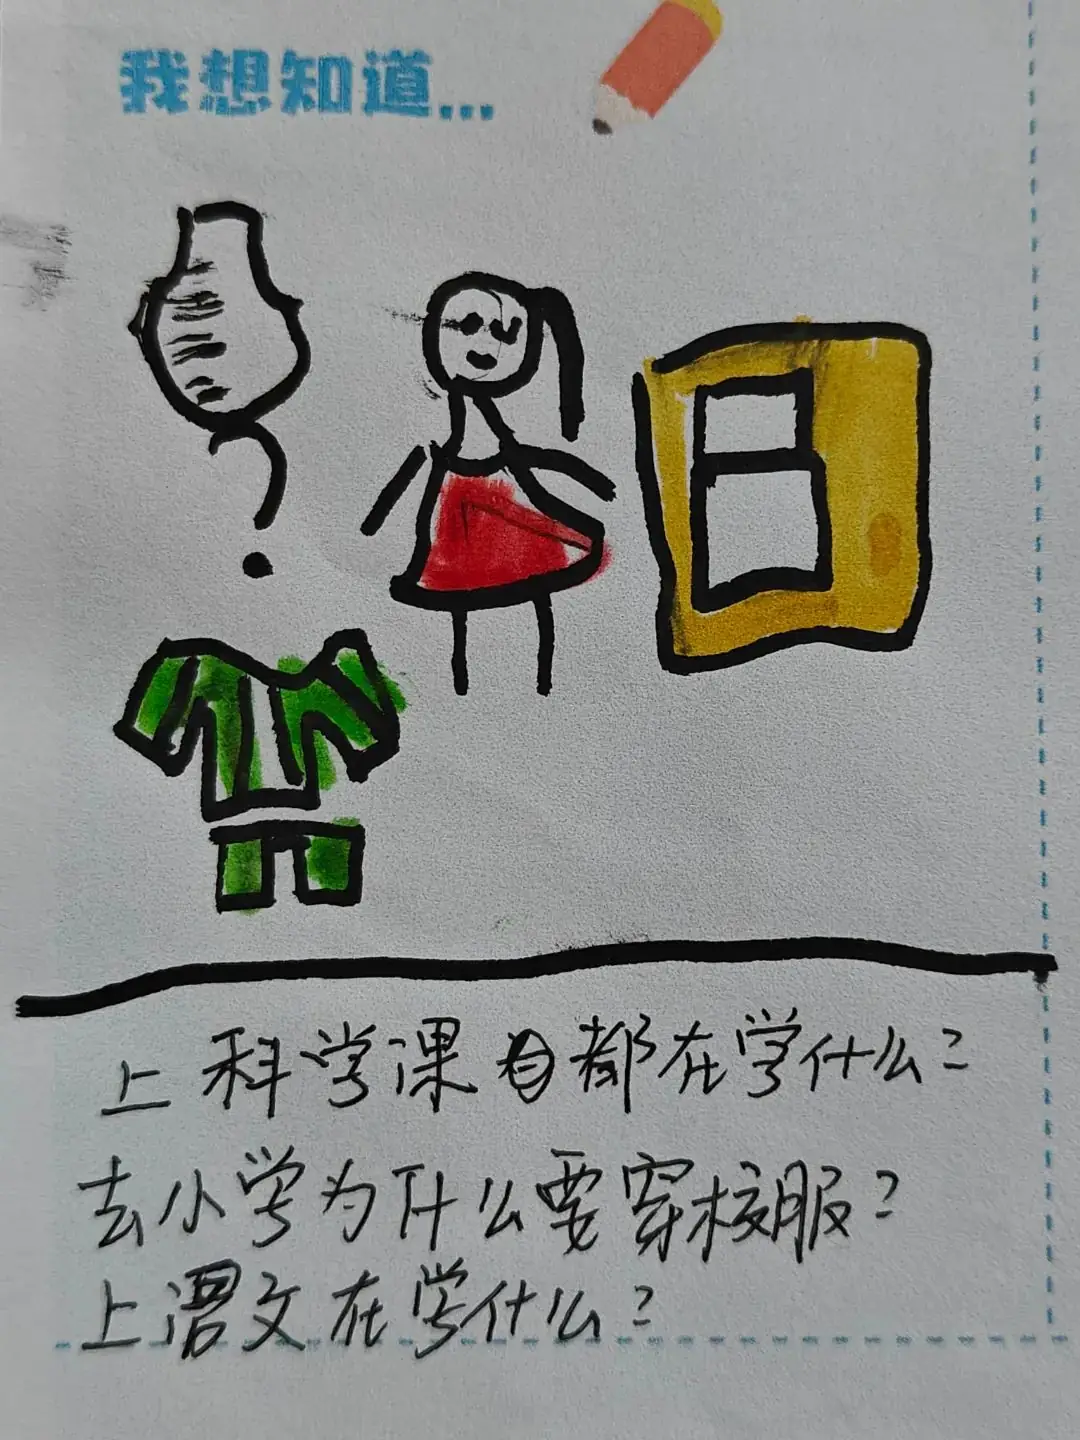 我想知道...
?
上科学课都在学什么？
去小学为什么要穿校服？
上语文在学什么？